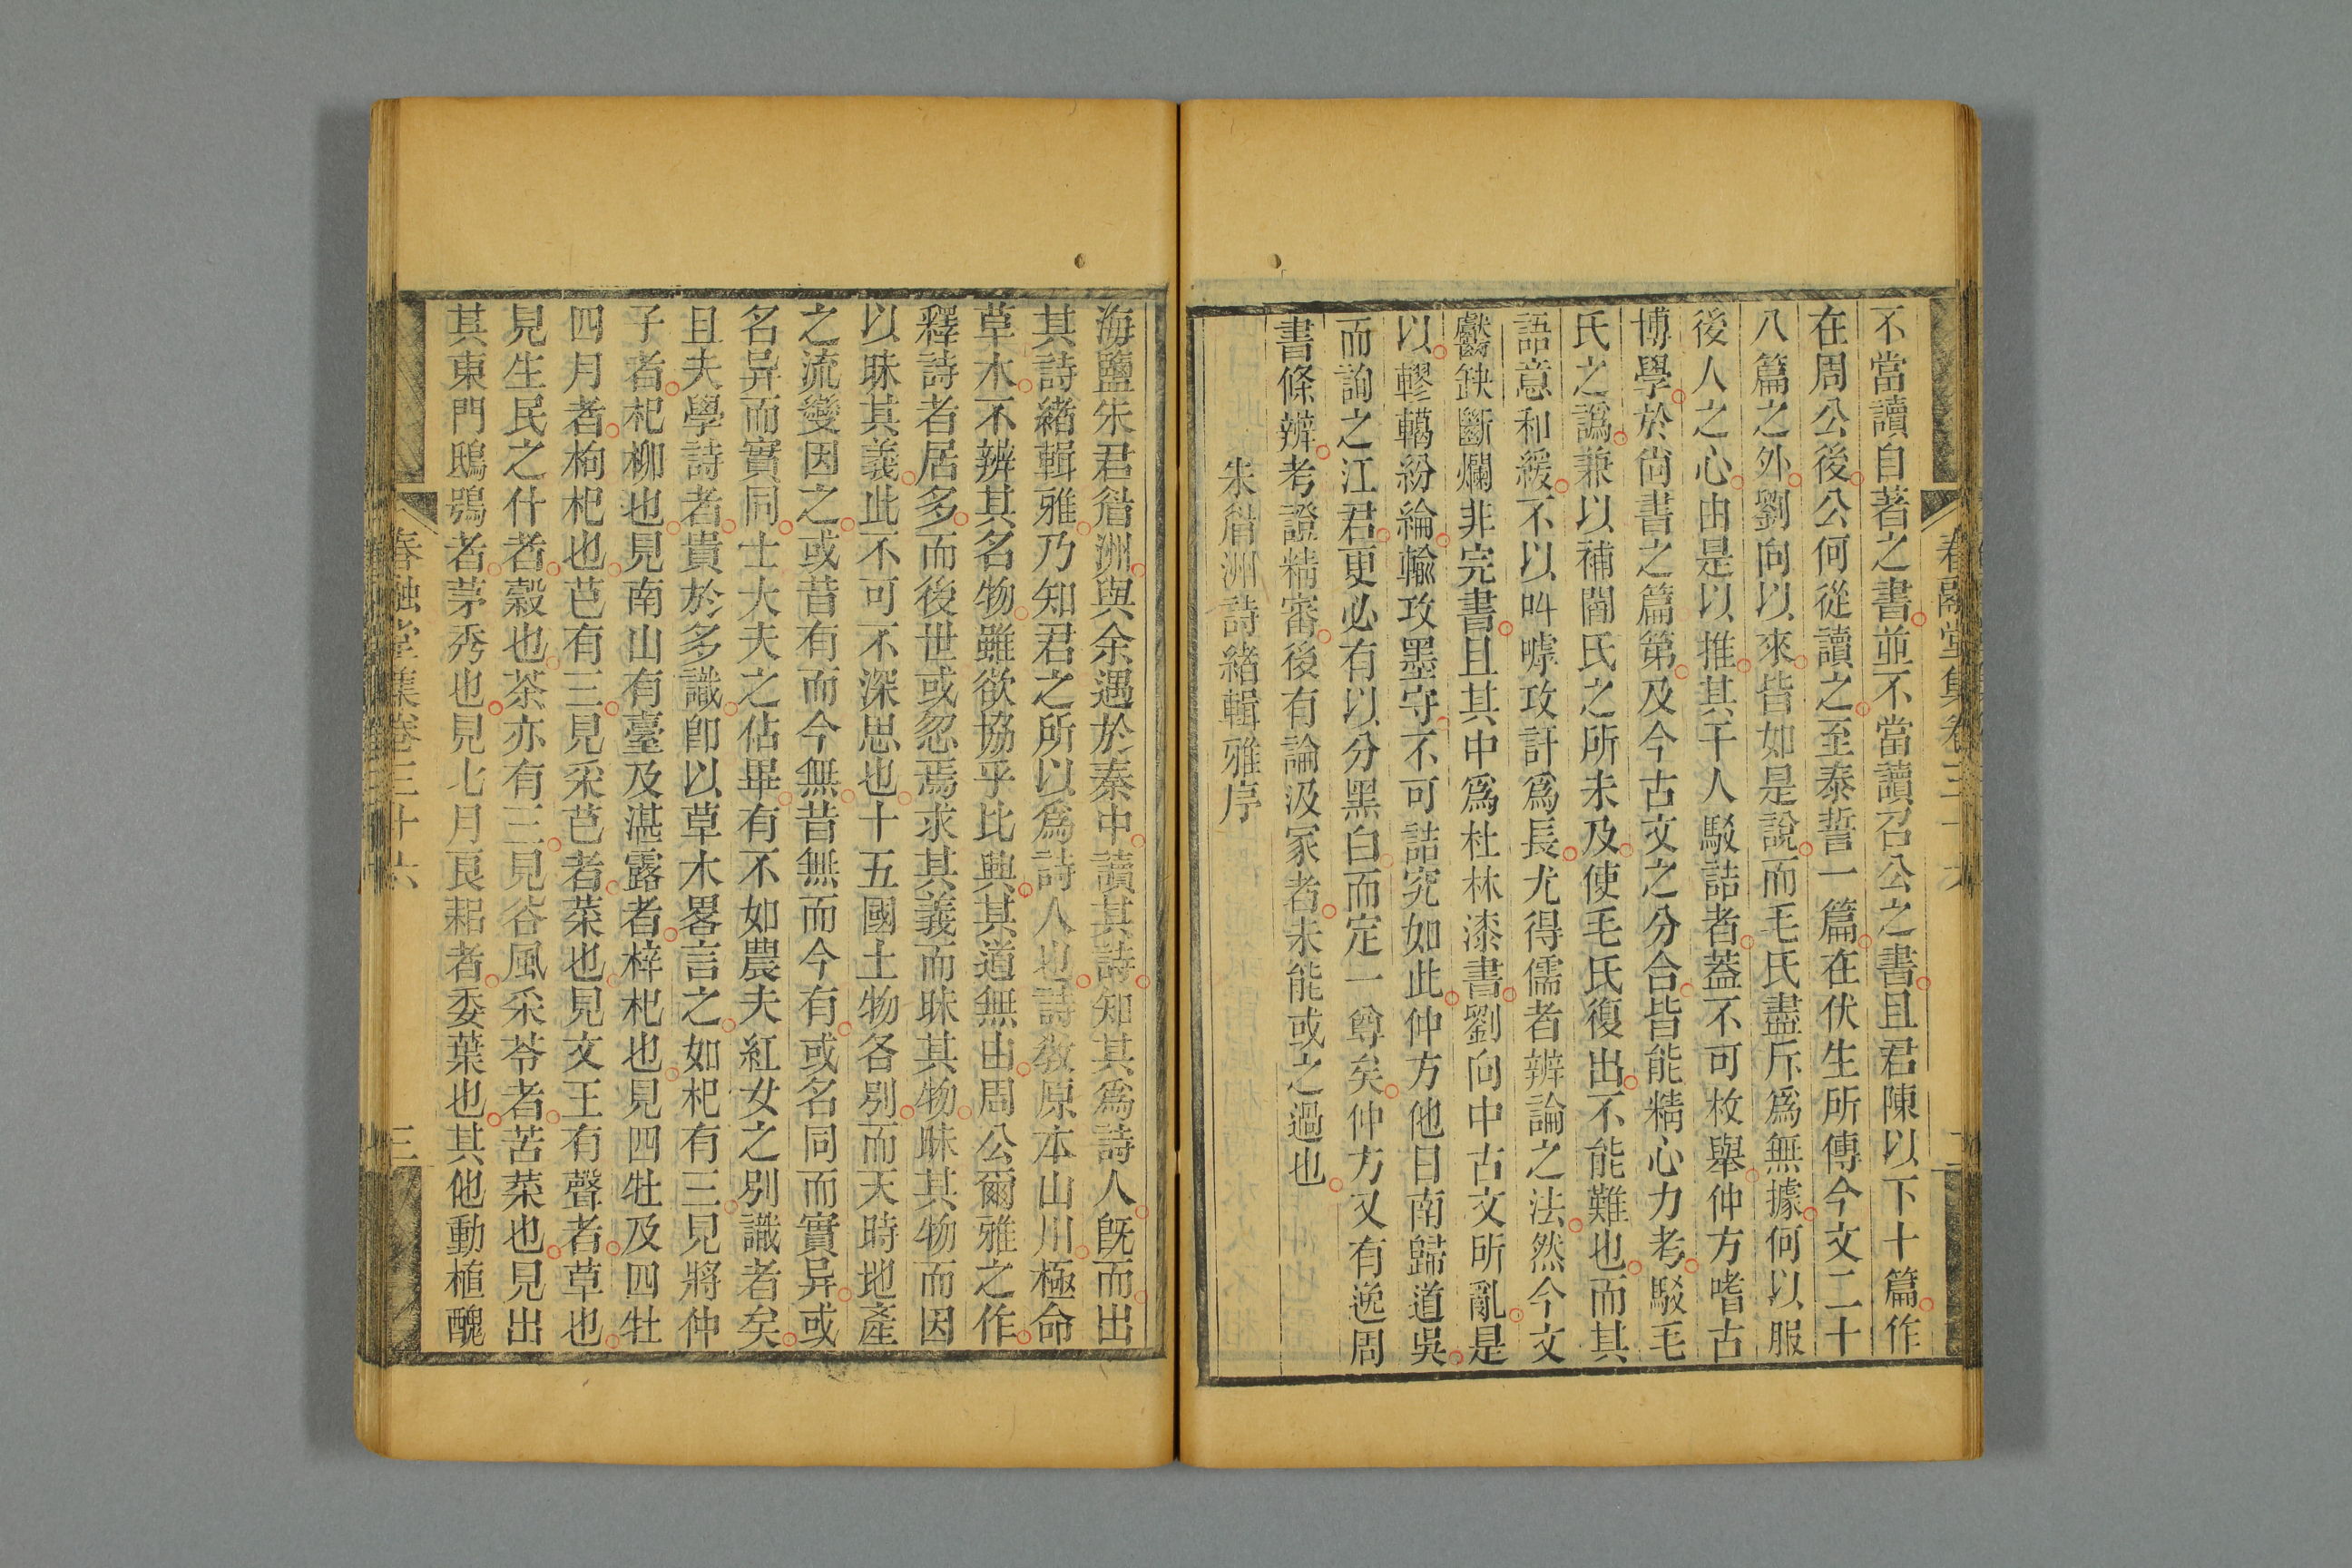 不當讀自著之書並不當讀召公之書且君陳以下十篇作
在周公後公何從讀之至泰誓一篇在伏生所傳今文二十
八篇之外劉向以來皆如是說而毛氏盡斥爲無據何以服
後人之心由是以推其干人駁詰者蓋不可枚舉仲方嗜古
博學於尙書之篇第及今古文之分合皆能精心力考駁毛
氏之譌兼以補閻氏之所未及使毛氏復出不能難也而其
語意和緩不以叫嘑攻訐爲長尤得儒者辨論之法然今文
齾缺斷爛非完書且其中爲杜林漆書劉向中古文所亂是
以轇轕紛綸輸攻墨守不可詰究如此仲方他日南歸道吳
而詢之江君更必有以分黑白而定一尊矣仲方又有逸周
書條辨考證精審後有論汲冢者未能或之過也
朱㟭洲詩緒輯雅序
春融堂集卷三十六
二
海鹽朱君㟭洲與余遇於秦中讀其詩知其爲詩人旣而出
其詩緖輯雅乃知君之所以爲詩人也詩敎原本山川極命
草木不辨其名物雖欲協乎比興其道無由周公爾雅之作
釋詩者居多而後世或忽焉求其義而昧其物昧其物而因
以昧其義此不可不深思也十五國土物各別而天時地產
之流變因之或昔有而今無昔無而今有或名同而實异或
名异而實同士大夫之佔畢有不如農夫紅女之別識者矣
且夫學詩者貴於多識卽以草木畧言之如杞有三見將仲
子者杞柳也見南山有臺及湛露者梓杞也見四牡及四牡
四月者枸杞也芑有三見采芑者菜也見文王有聲者草也
見生民之什者穀也荼亦有三見谷風采苓者苦菜也見出
其東門鴟鴞者茅秀也見七月良耜者委葉也其他動植醜
春融堂集卷三十六
三